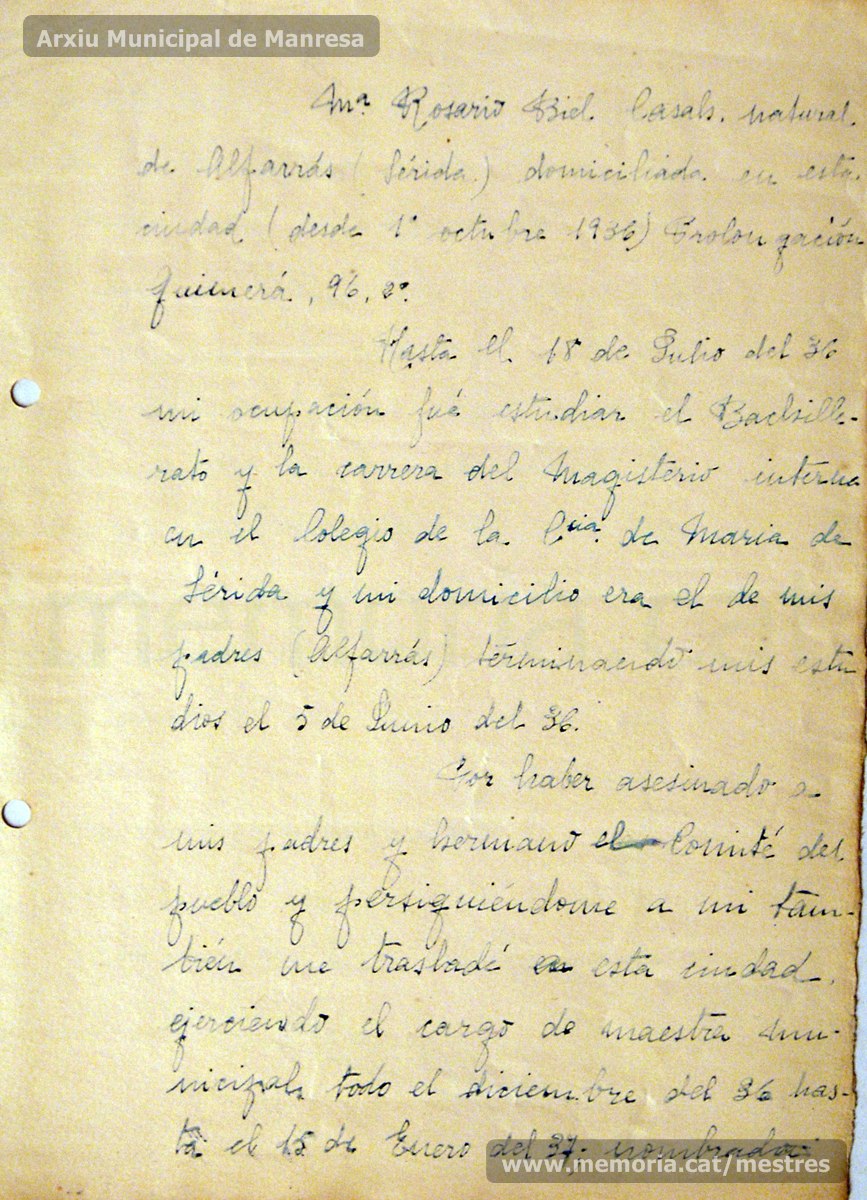 Arxiu Municipal de Manresa
Mª Rosario Biel Casals. natural.
de Alfarrás (Lérida) domiciliada en esta
ciudad (desde 1º octubre 1936) Prolongación
Guimerá, 96, 2º.
Hasta el 18 de Julio del 36
mi ocupación fué estudiar el Bachille-
rato y la carrera del Magisterio interna
en el Colegio de la Cia. de Maria de
Lérida y mi domicilio era el de mis
padres (Alfarrás) terminando mis estu
dios el 5 de Junio del 36.
Por haber asesinado a
mis padres y hermano el Comité del
pueblo y persiguiéndome a mi tam-
bién me trasladé en esta ciudad,
ejerciendo el cargo de maestra mu-
nicipal, todo el diciembre del 36 has-
ta el 15 de Enero del 37; nombrada
www.memoria.cat/mestres